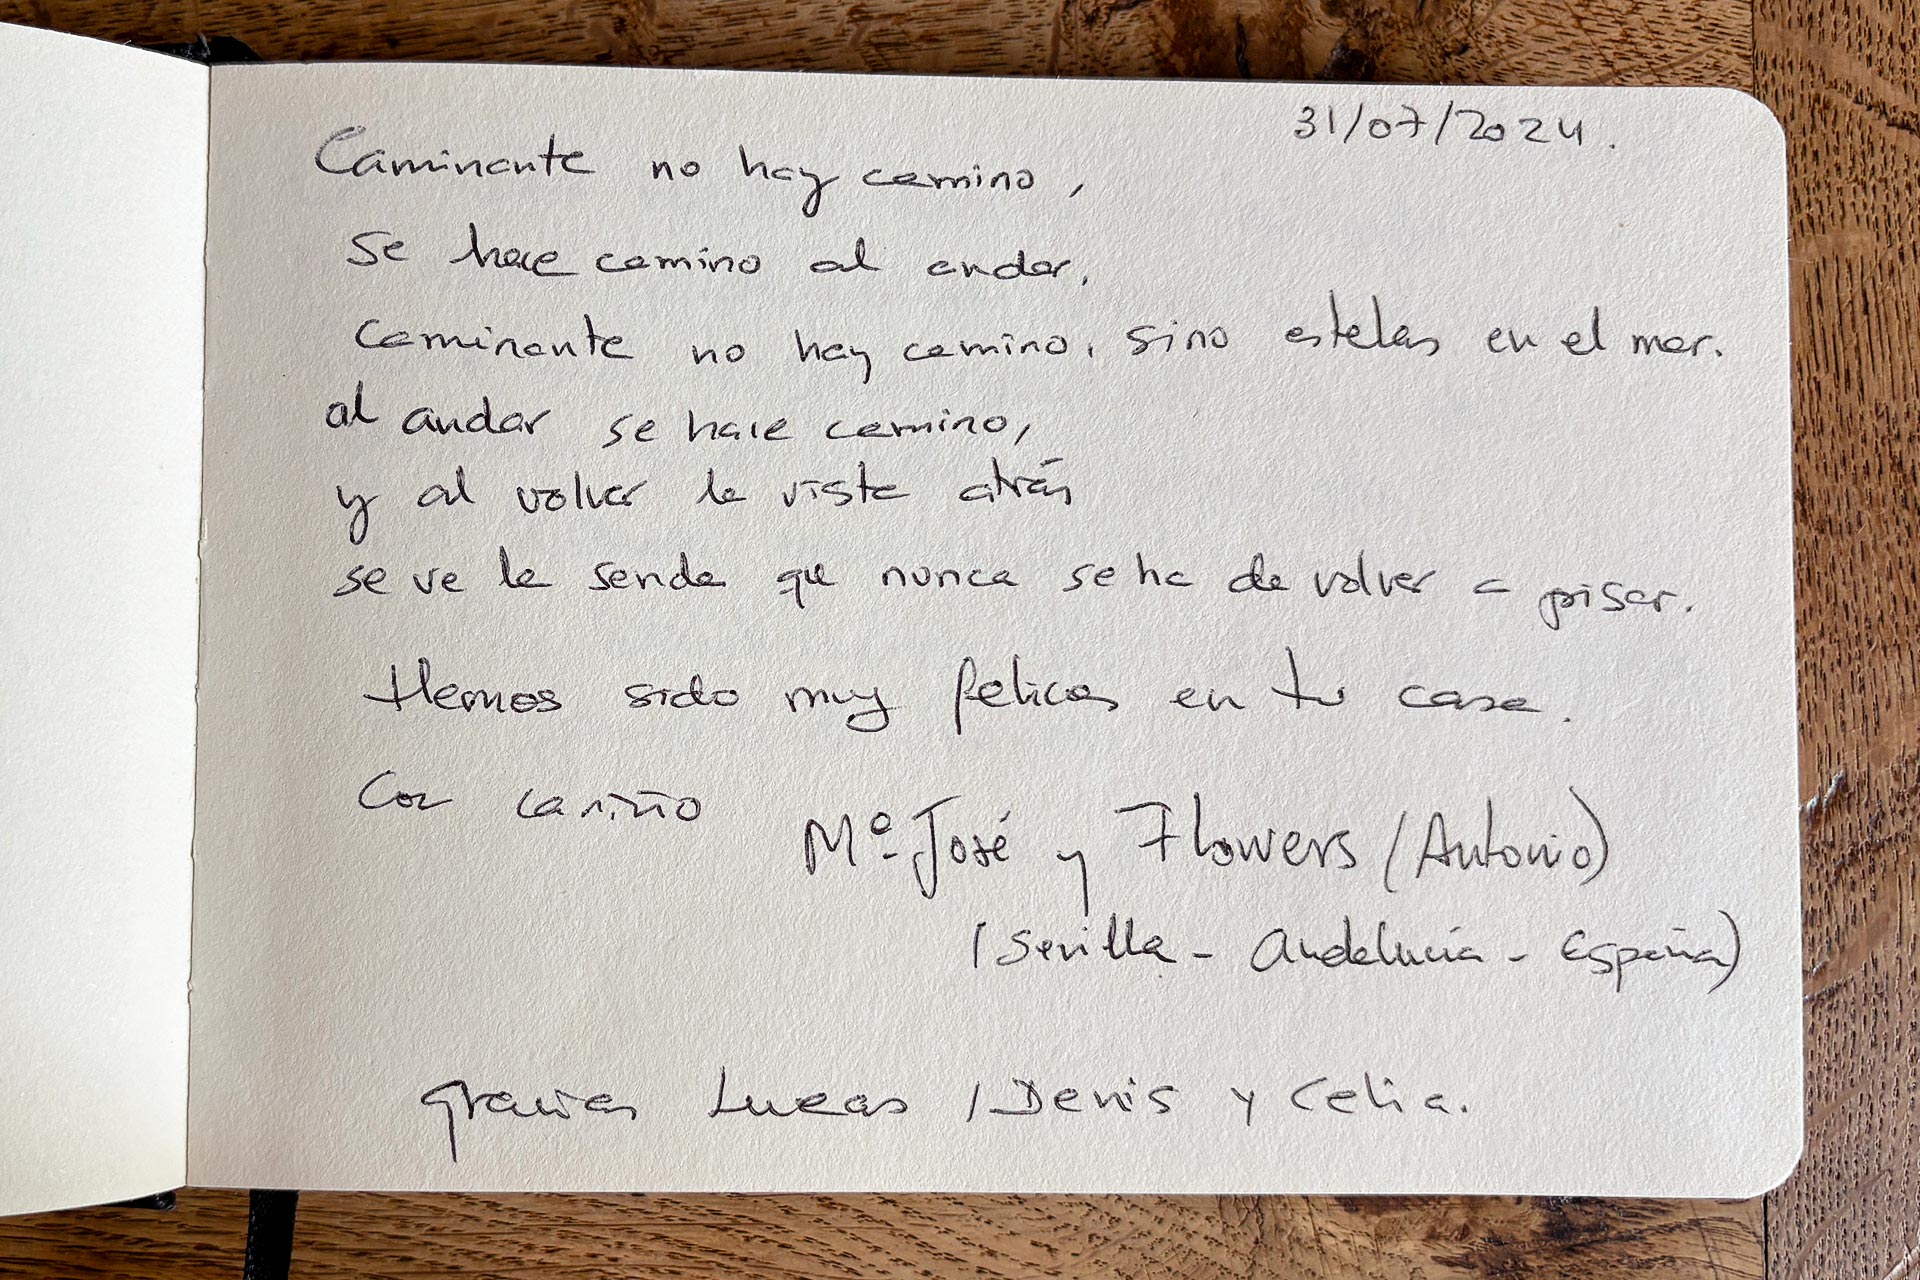 31/07/2024.
Caminante no hay camino,
se hace camino al andar.
Caminante no hay camino, sino estelas en el mar.
al andar se hace camino,
y al volver la vista atrás
se ve la senda que nunca se ha de volver a pisar.
Hemos sido muy felices en tu casa.
Con cariño
Mª José y Flowers (Antonio)
(Sevilla - Andalucía - España)
Gracias Lucas, Denis y Celia.